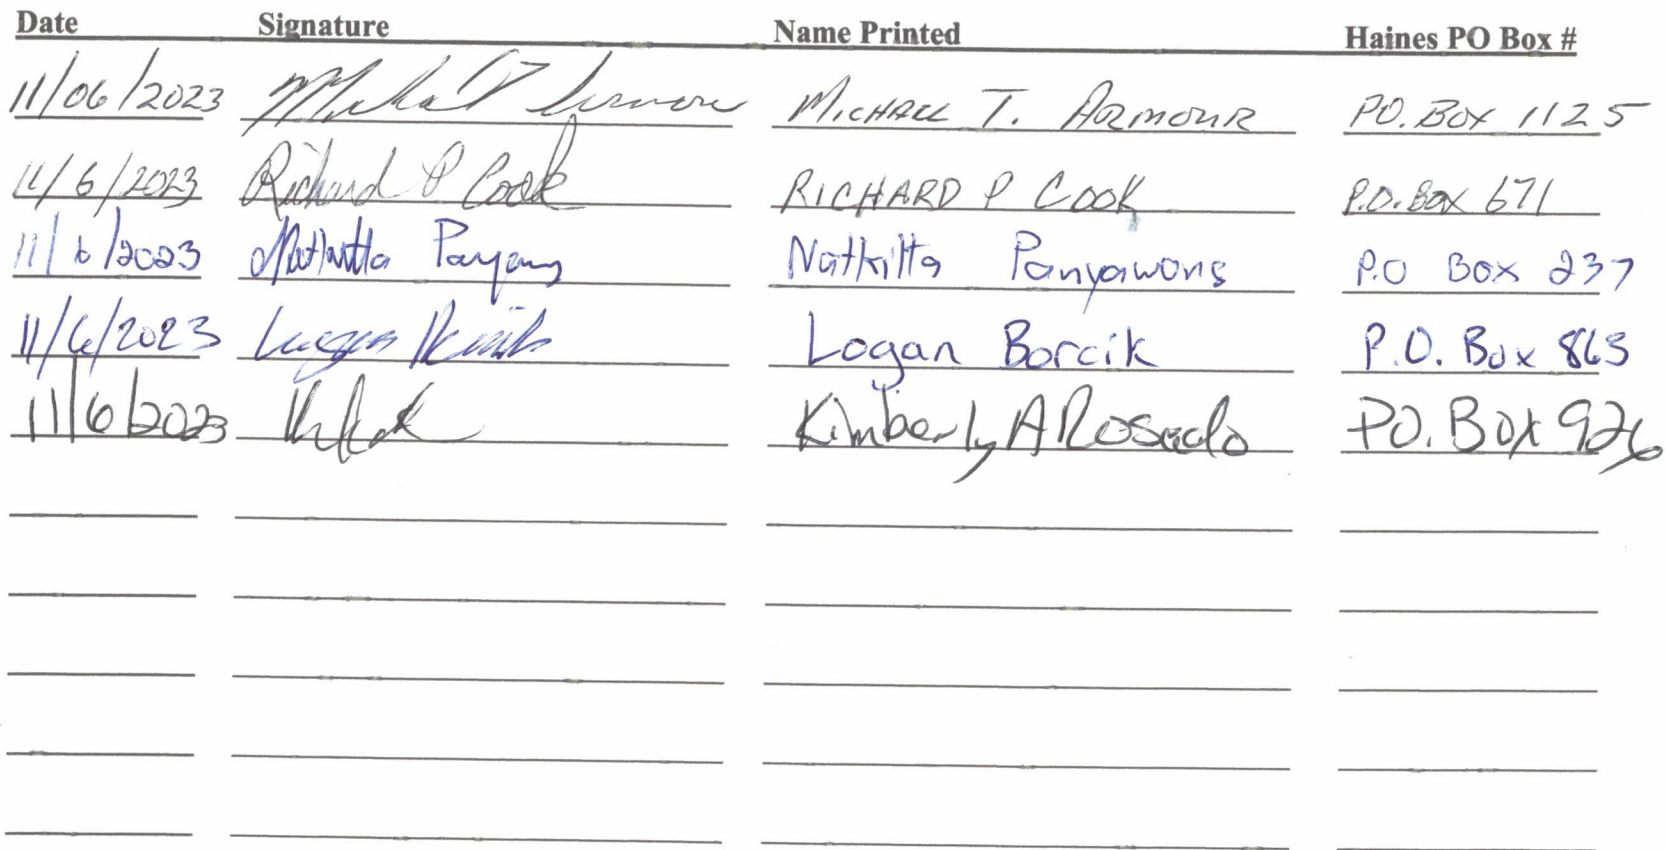 Date Signature Name Printed Haines PO Box #
11/06/2023 MICHAEL T. ARMOUR P.O. BOX 1125
11/6/2023 Richard P Cook RICHARD P COOK P.O. BOX 671
11/6/2023 Natkitta Panyawong P.O Box 237
11/6/2023 Logan Borcik P.O. Box 863
11/6/2023 Kimberly A Rosado P.O. Box 926